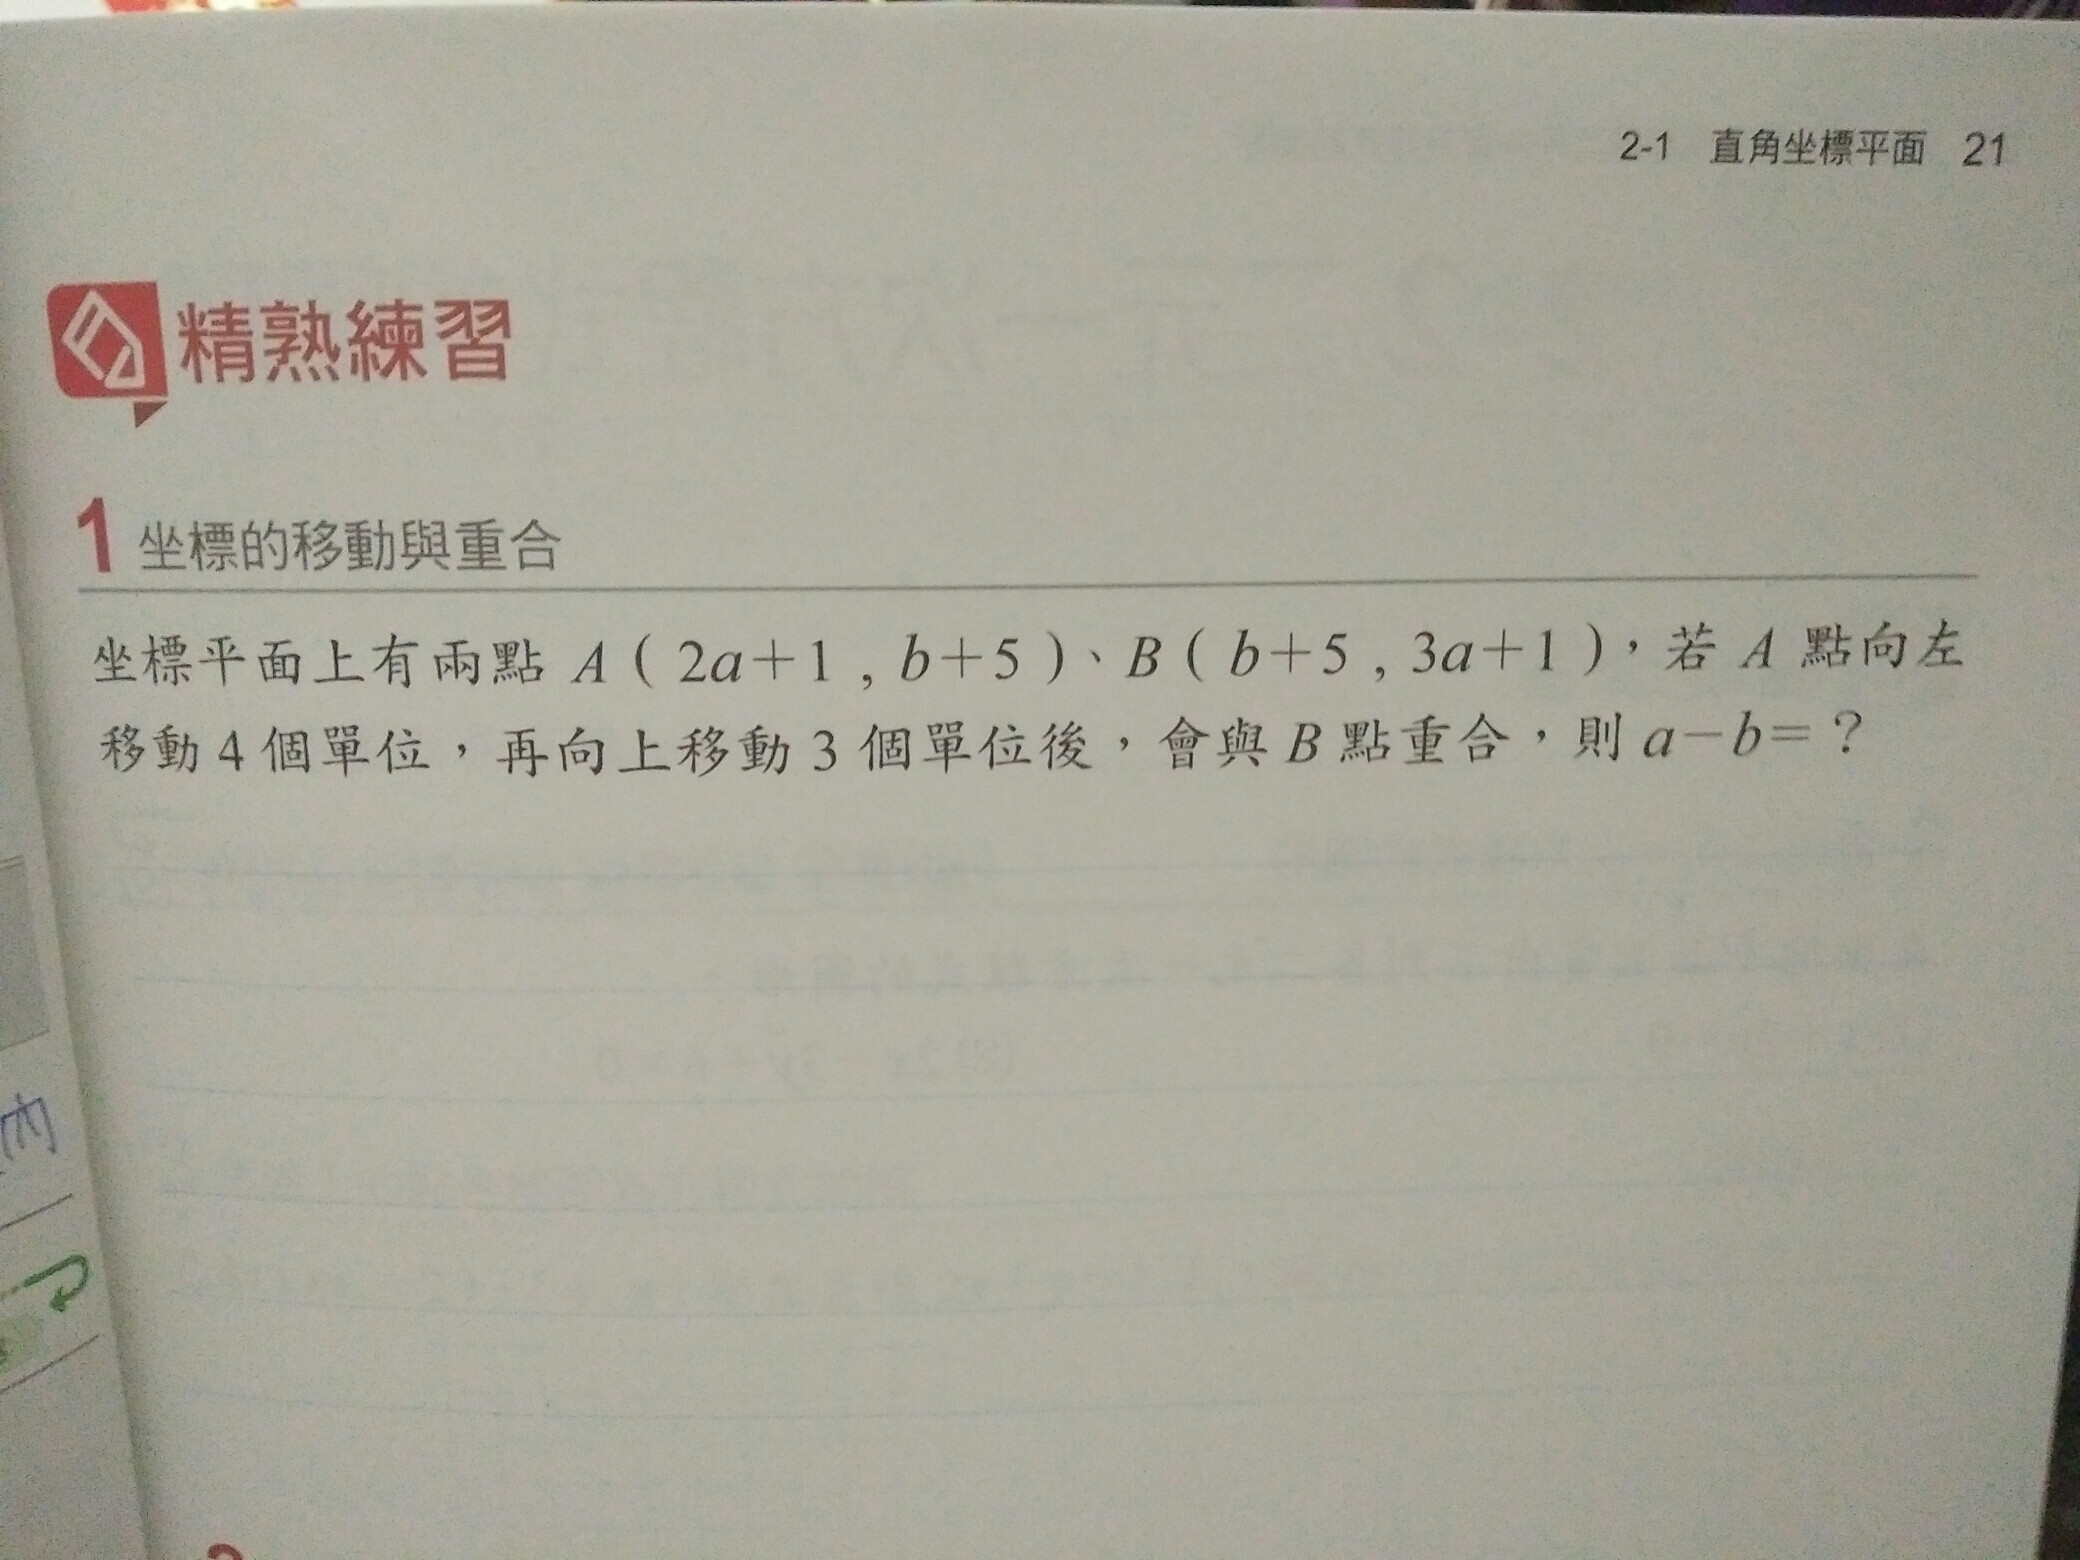 2-1 直角坐標平面 21
精熟練習
1 坐標的移動與重合
坐標平面上有兩點 A（2a＋1 , b＋5）、B（b＋5 , 3a＋1），若 A 點向左
移動 4 個單位，再向上移動 3 個單位後，會與 B 點重合，則 a－b＝？
內